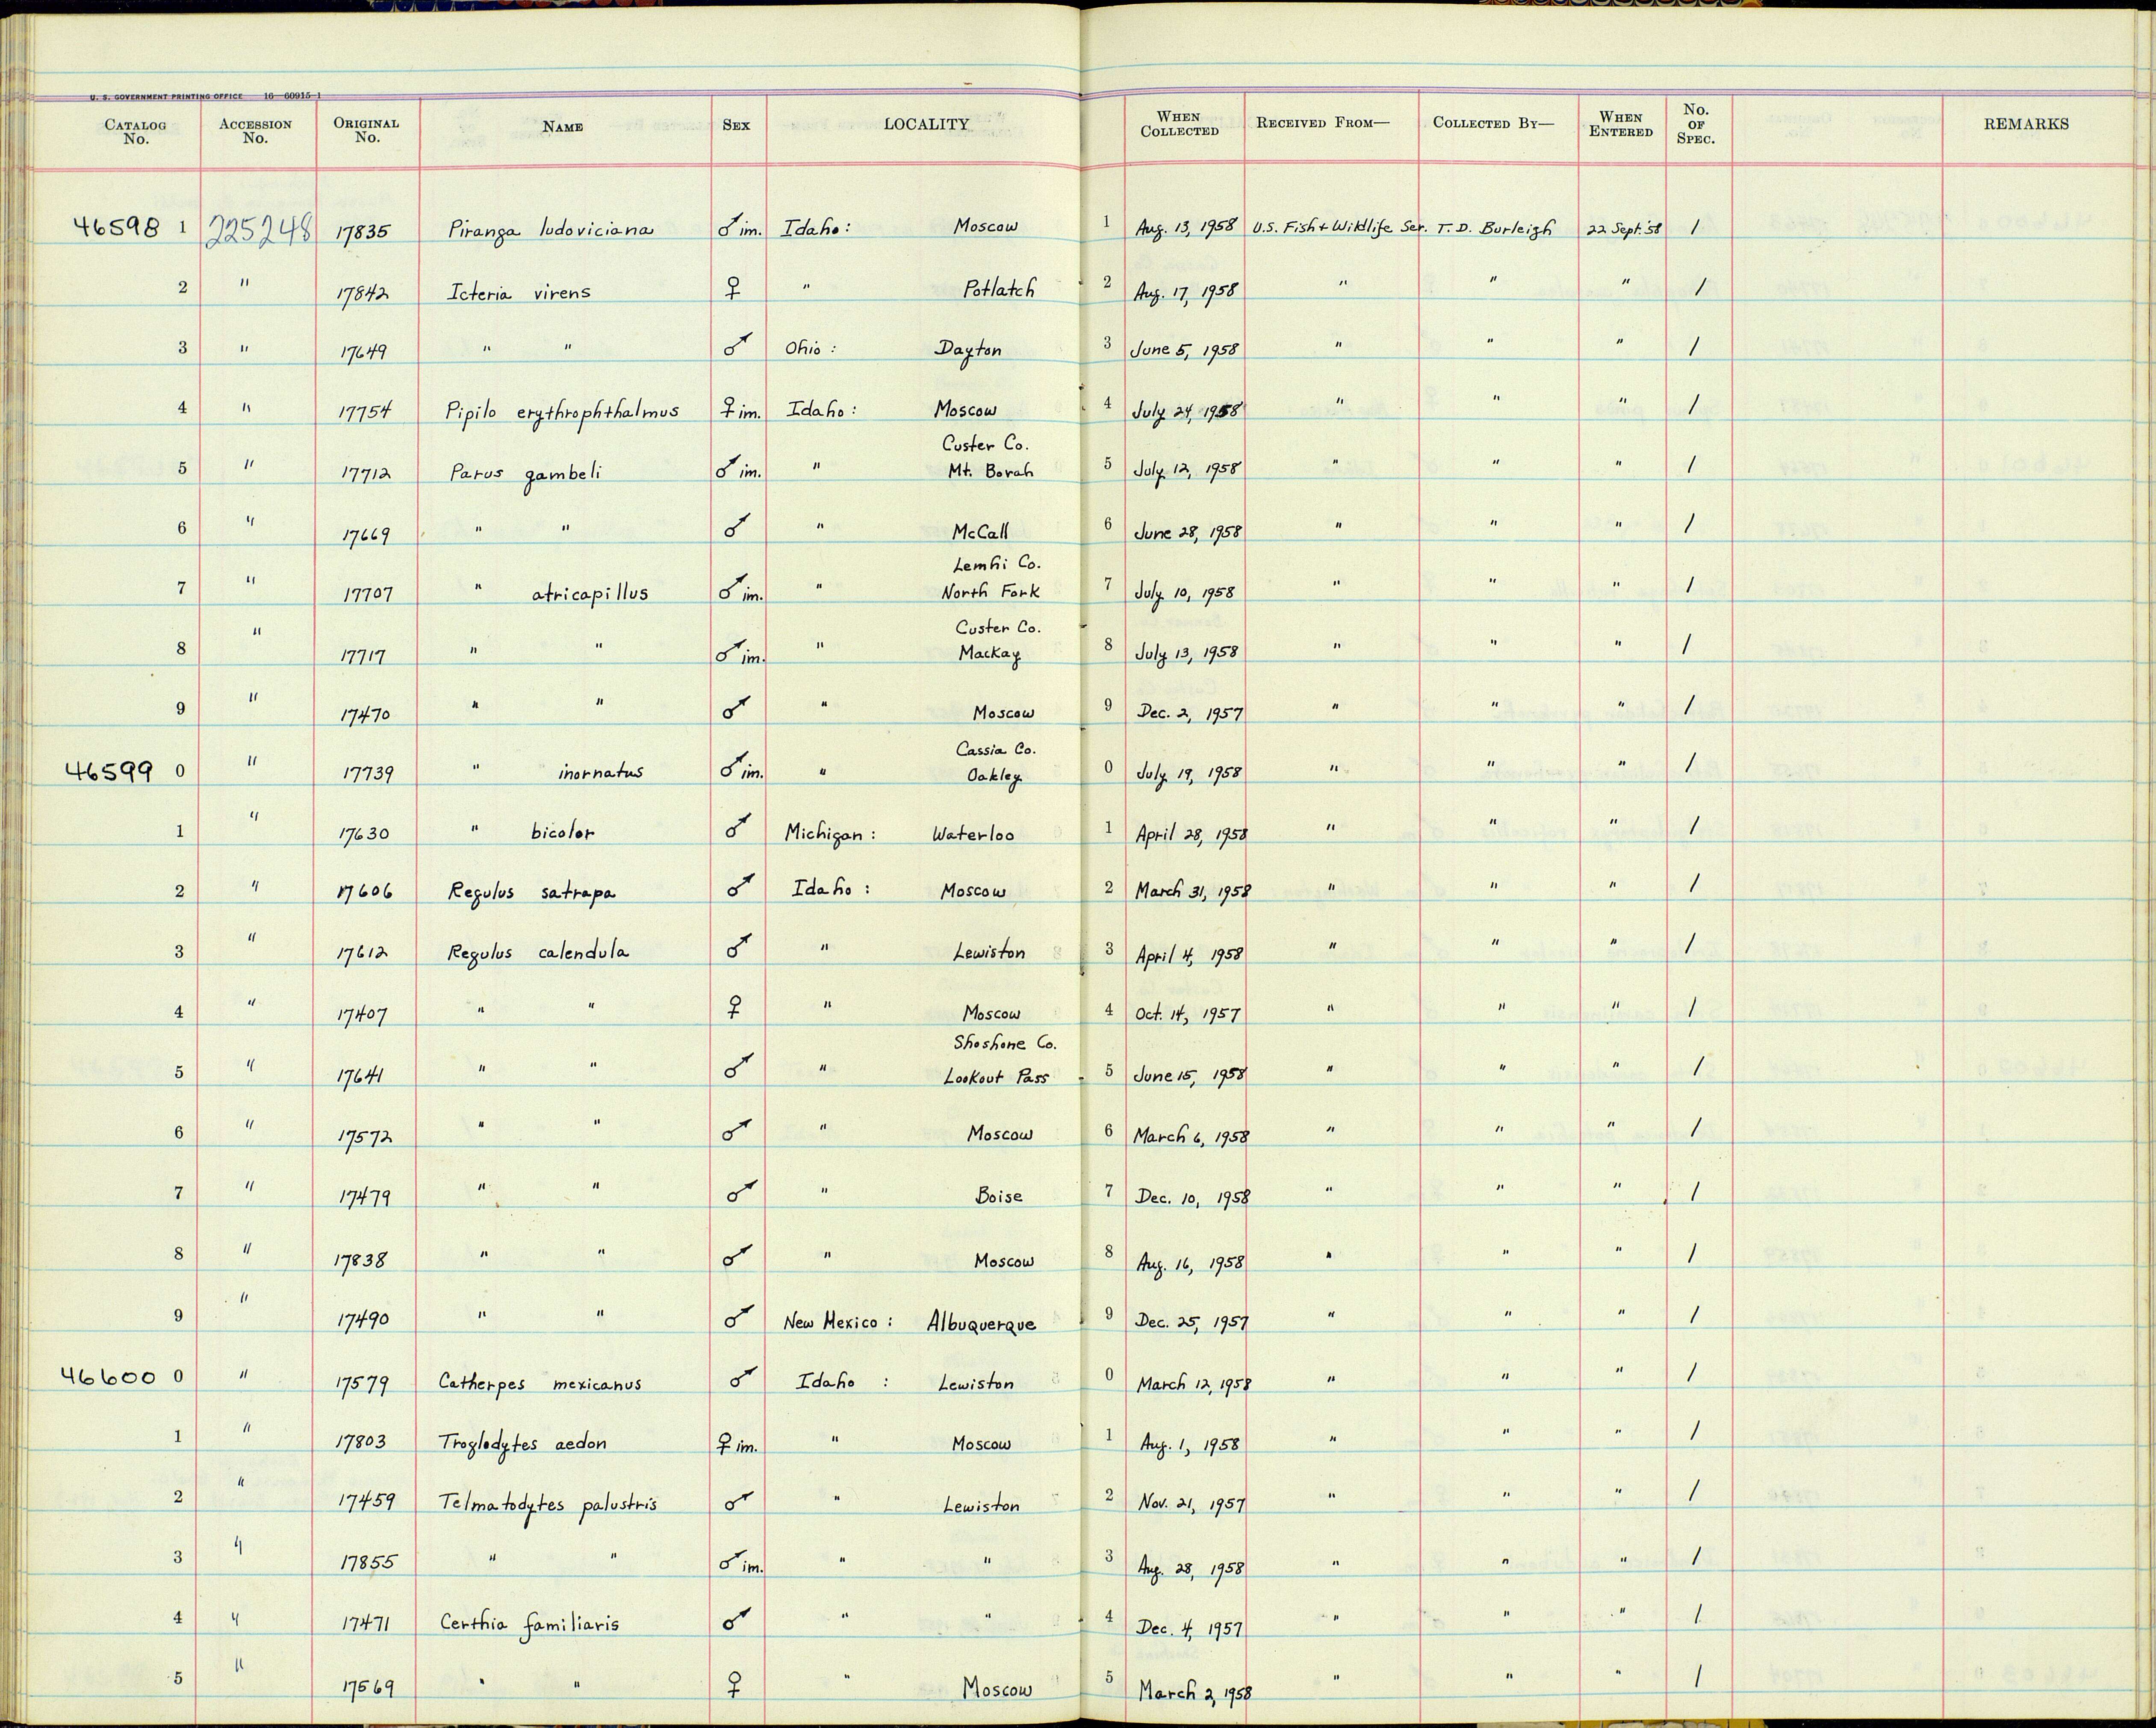 U. S. GOVERNMENT PRINTING OFFICE 16—60915-1
CATALOG No. ACCESSION No. ORIGINAL No. NAME SEX LOCALITY WHEN COLLECTED RECEIVED FROM— COLLECTED BY— WHEN ENTERED No. OF SPEC. REMARKS
46598 1 225248 17835 Piranga ludoviciana ♂ im. Idaho: Moscow 1 Aug. 13, 1958 U.S. Fish + Wildlife Ser. T. D. Burleigh 22 Sept. '58 1
2 " 17842 Icteria virens ♀ " Potlatch 2 Aug. 17, 1958 " " " 1
3 " 17649 " " ♂ Ohio: Dayton 3 June 5, 1958 " " " 1
4 " 17754 Pipilo erythrophthalmus ♀ im. Idaho: Moscow 4 July 24, 1958 " " " 1
Custer Co.
5 " 17712 Parus gambeli ♂ im. " Mt. Borah 5 July 12, 1958 " " " 1
6 " 17669 " " ♂ " McCall 6 June 28, 1958 " " " 1
Lemhi Co.
7 " 17707 " atricapillus ♂ im. " North Fork 7 July 10, 1958 " " " 1
Custer Co.
8 " 17717 " " ♂ im. " Mackay 8 July 13, 1958 " " " 1
9 " 17470 " " ♂ " Moscow 9 Dec. 2, 1957 " " " 1
Cassia Co.
46599 0 " 17739 " inornatus ♂ im. " Oakley 0 July 19, 1958 " " " 1
1 " 17630 " bicolor ♂ Michigan: Waterloo 1 April 28, 1958 " " " 1
2 " 17606 Regulus satrapa ♂ Idaho: Moscow 2 March 31, 1958 " " " 1
3 " 17612 Regulus calendula ♂ " Lewiston 3 April 4, 1958 " " " 1
4 " 17407 " " ♀ " Moscow 4 Oct. 14, 1957 " " " 1
Shoshone Co.
5 " 17641 " " ♂ " Lookout Pass 5 June 15, 1958 " " " 1
6 " 17572 " " ♂ " Moscow 6 March 6, 1958 " " " 1
7 " 17479 " " ♂ " Boise 7 Dec. 10, 1958 " " " 1
8 " 17838 " " ♂ " Moscow 8 Aug. 16, 1958 " " " 1
9 " 17490 " " ♂ New Mexico: Albuquerque 9 Dec. 25, 1957 " " " 1
46600 0 " 17579 Catherpes mexicanus ♂ Idaho : Lewiston 0 March 12, 1958 " " " 1
1 " 17803 Troglodytes aedon ♀ im. " Moscow 1 Aug. 1, 1958 " " " 1
2 " 17459 Telmatodytes palustris ♂ " Lewiston 2 Nov. 21, 1957 " " " 1
3 " 17855 " " ♂ im. " " 3 Aug. 28, 1958 " " " 1
4 " 17471 Certhia familiaris ♂ " " 4 Dec. 4, 1957 " " " 1
5 " 17569 " " ♀ " Moscow 5 March 2, 1958 " " " 1